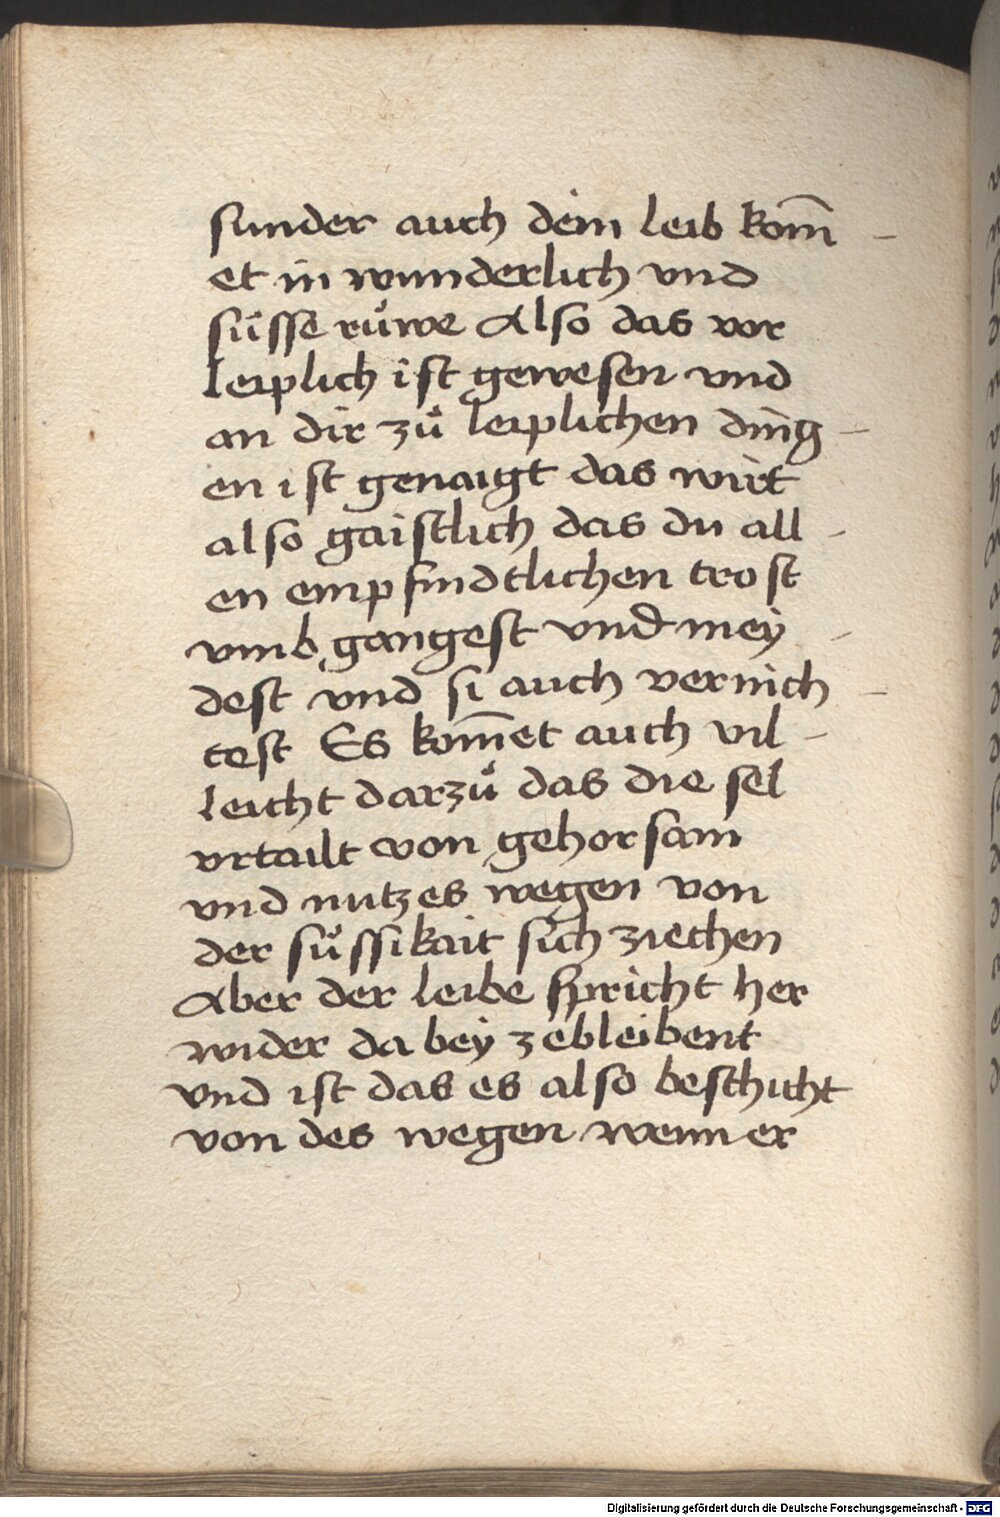 sunder auch dem leib kom̅
et in wunderlich vnd
süsse růwe Also das vor
leiplich ist gewesen vnd
an dir zů leiplichen ding
en ist genaigt das wirt
also gaistlich das du all
en empfindtlichen trost
vmb gangest vnd mey
dest vnd si auch vernich
test Es kom̅et auch vil
leicht darzů das die sel
vrtailt von gehorsam
vnd nutzes wegen von
der sůssikait sich ziechen
Aber der leibe spricht her
wider da bey zebleibent
vnd ist das es also beschicht
von des wegen wenn er
Digitalisierung gefördert durch die Deutsche Forschungsgemeinschaft - DFG